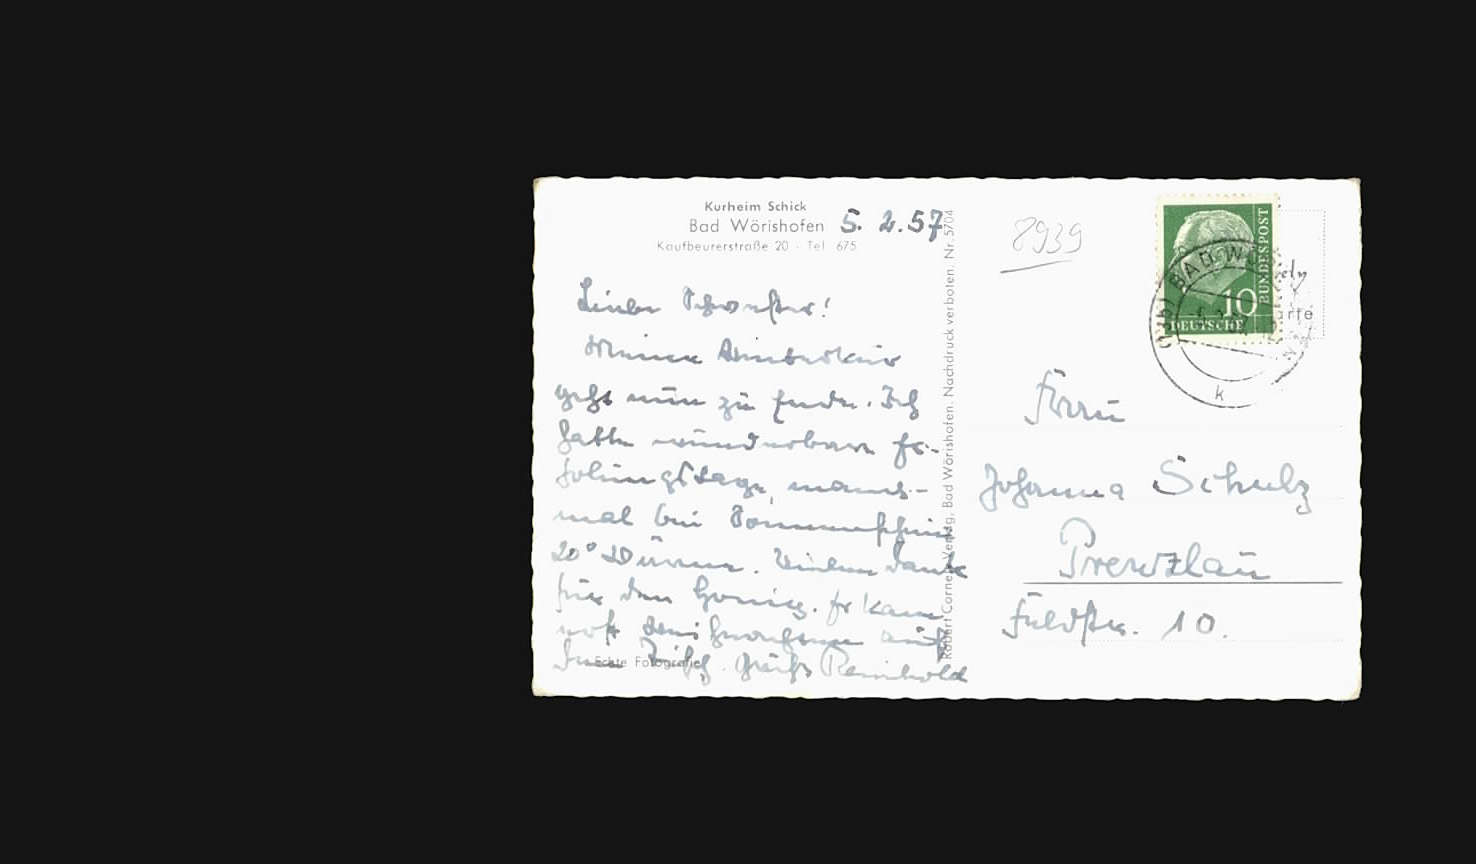 Kurheim Schick
Bad Wörishofen
5. 2. 57
Kaufbeurerstraße 20 - Tel 675
Liebe Schwester!
Meine Winterkur
geht nun zu Ende. Ich
hatte wunderbare Er-
holungstage, manch-
mal bei Sonnenschein
20° Wärme. Vielen Dank
für den Honig. Er kam
noch
den Tisch. Grüße Reinhold
Echte Fotografie
Robert Cornely Verlag, Bad Wörishofen. Nachdruck verboten. Nr. 5704
8939
DEUTSCHE BUNDESPOST
10
BAD WÖ
k
Frau
Johanna Schulz
Prenzlau
Feldstr. 10.